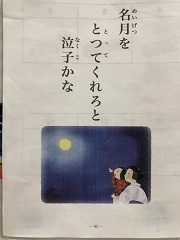 名月を
とってくれろと
泣子かな
めいげつ
とって
なくこ
— 92 —